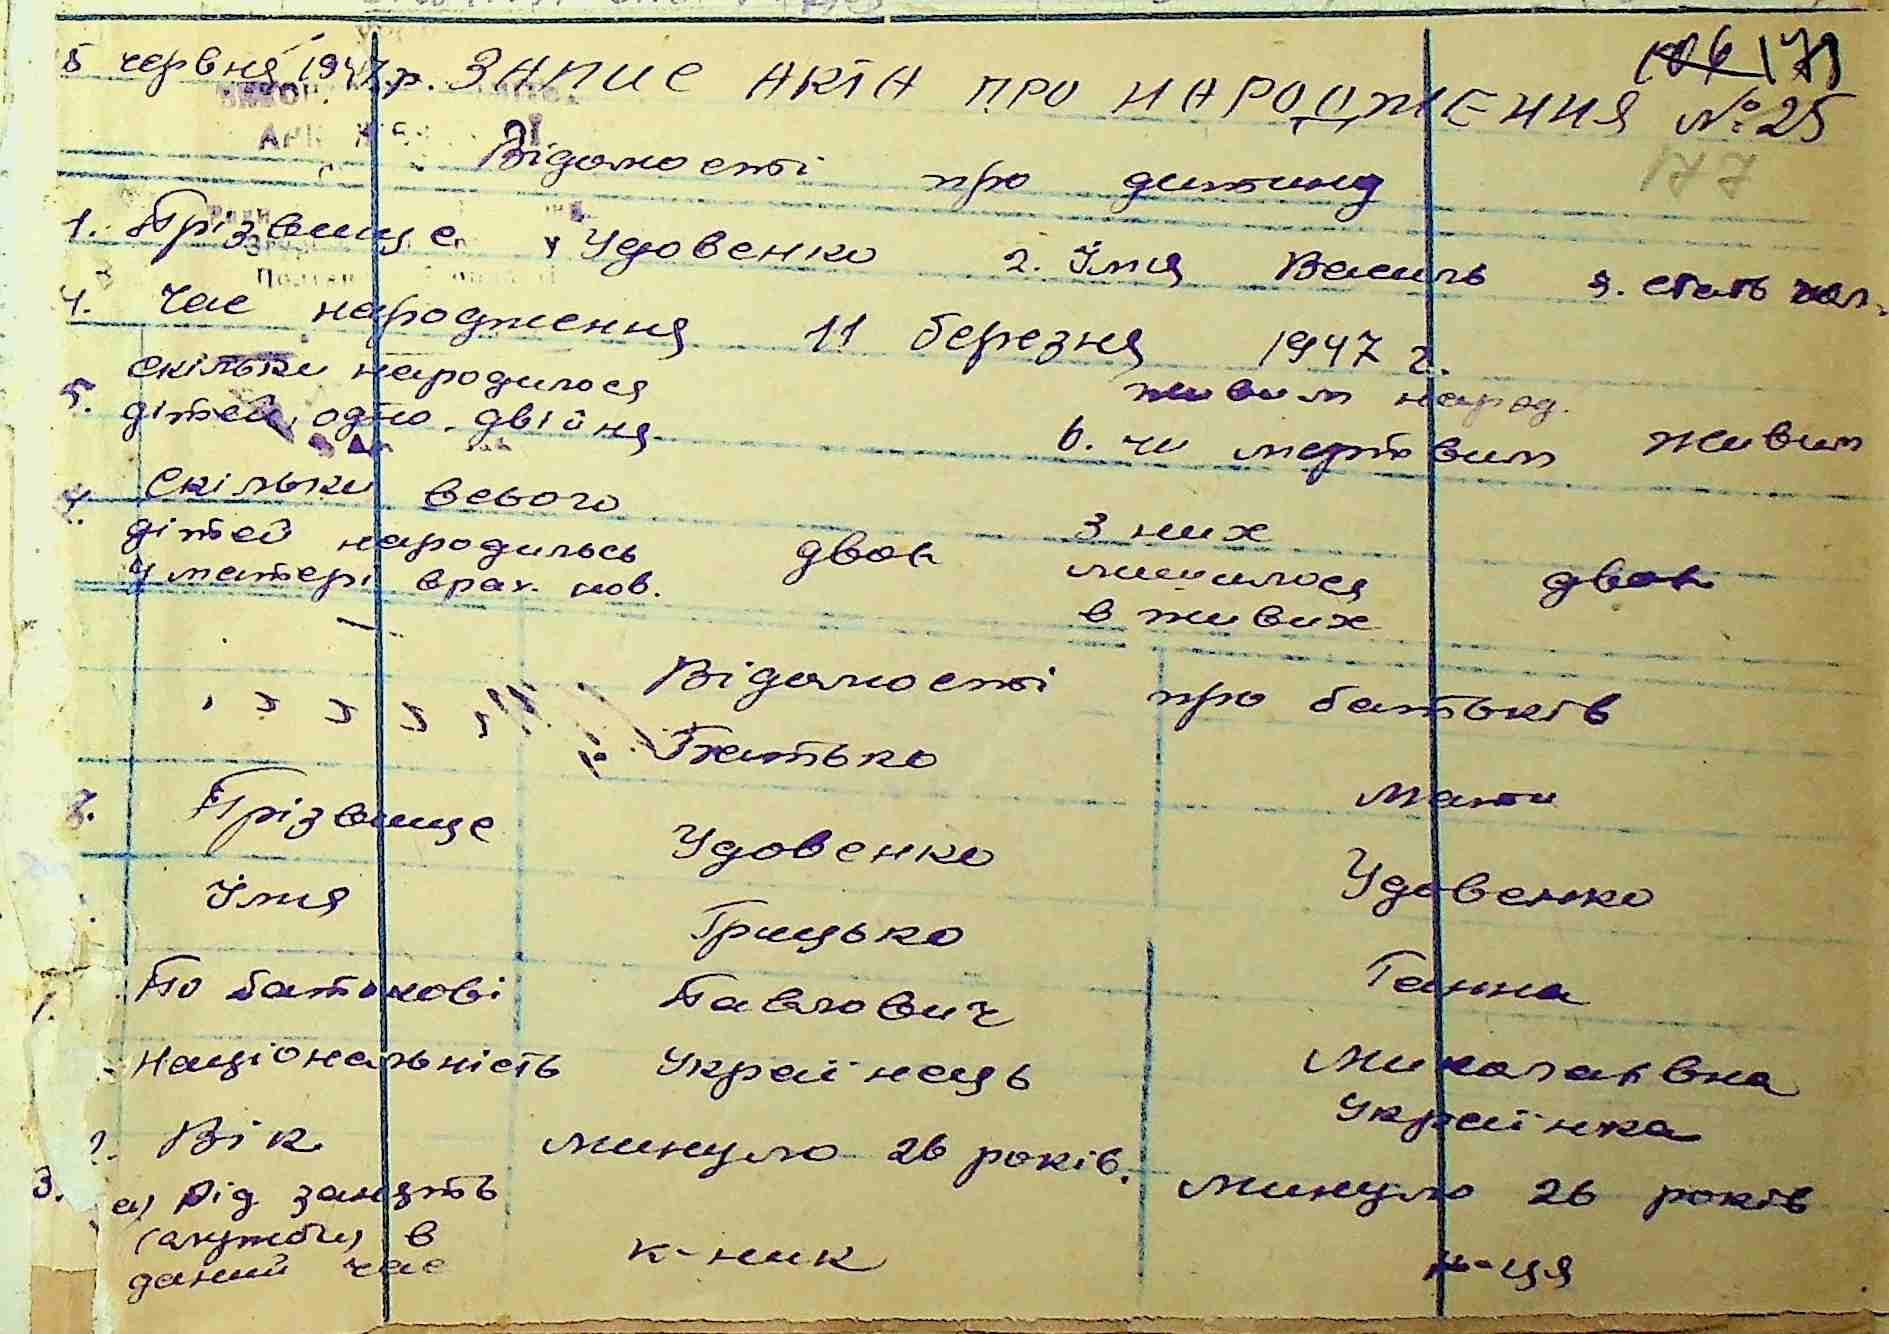 5 червня 1947 р. ЗАПИС АКТА ПРО НАРОДЖЕННЯ № 25
179
177
Відомості про дитину
1. Прізвище Удовенко 2. Їмя Василь 3. стать чол.
4. Час народження 11 березня 1947 г.
5. Скільки народилося дітей, одно, двійня
6. живим народ. чи мертвим живим
7. Скільки всього дітей народилось у матері врах. нов. двоє
З них лишилося в живих двоє
Відомості про батьків
Батько Мати
8. Прізвище Удовенко Удовенко
Їмя Грицько Ганна
По батькові Павлович Миколаївна
Національність Українець Українка
Вік минуло 26 років. минуло 26 років
3. а) Рід занять (служби) в даний час к-ник к-ця